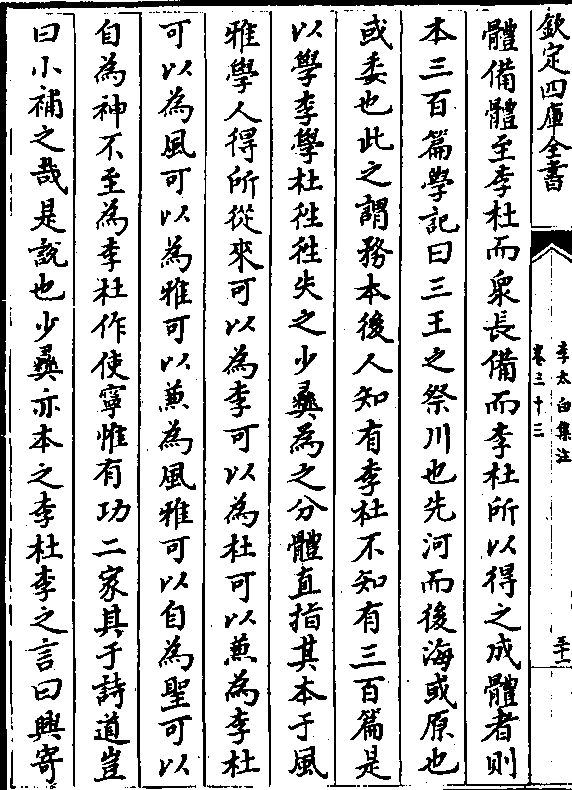 欽定四庫全書
李太白集注
卷三十三
體備體至李杜而衆長備而李杜所以得之成體者則
本三百篇學記曰三王之祭川也先河而後海或原也
或委也此之謂務本後人知有李杜不知有三百篇是
以學李學杜徃徃失之少彞為之分體直指其本于風
雅學人得所從來可以為李可以為杜可以兼為李杜
可以為風可以為雅可以兼為風雅可以自為聖可以
自為神不至為李杜作使寧惟有功二家其于詩道豈
曰小補之哉是說也少彞亦本之李杜李之言曰興寄